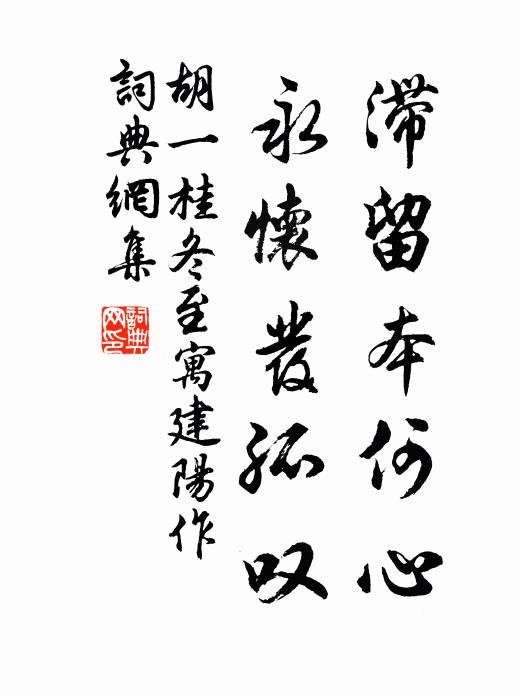 滞留本何心
永懷發孤叹
胡一桂冬至寓建陽作
詞典網集
詞典网印